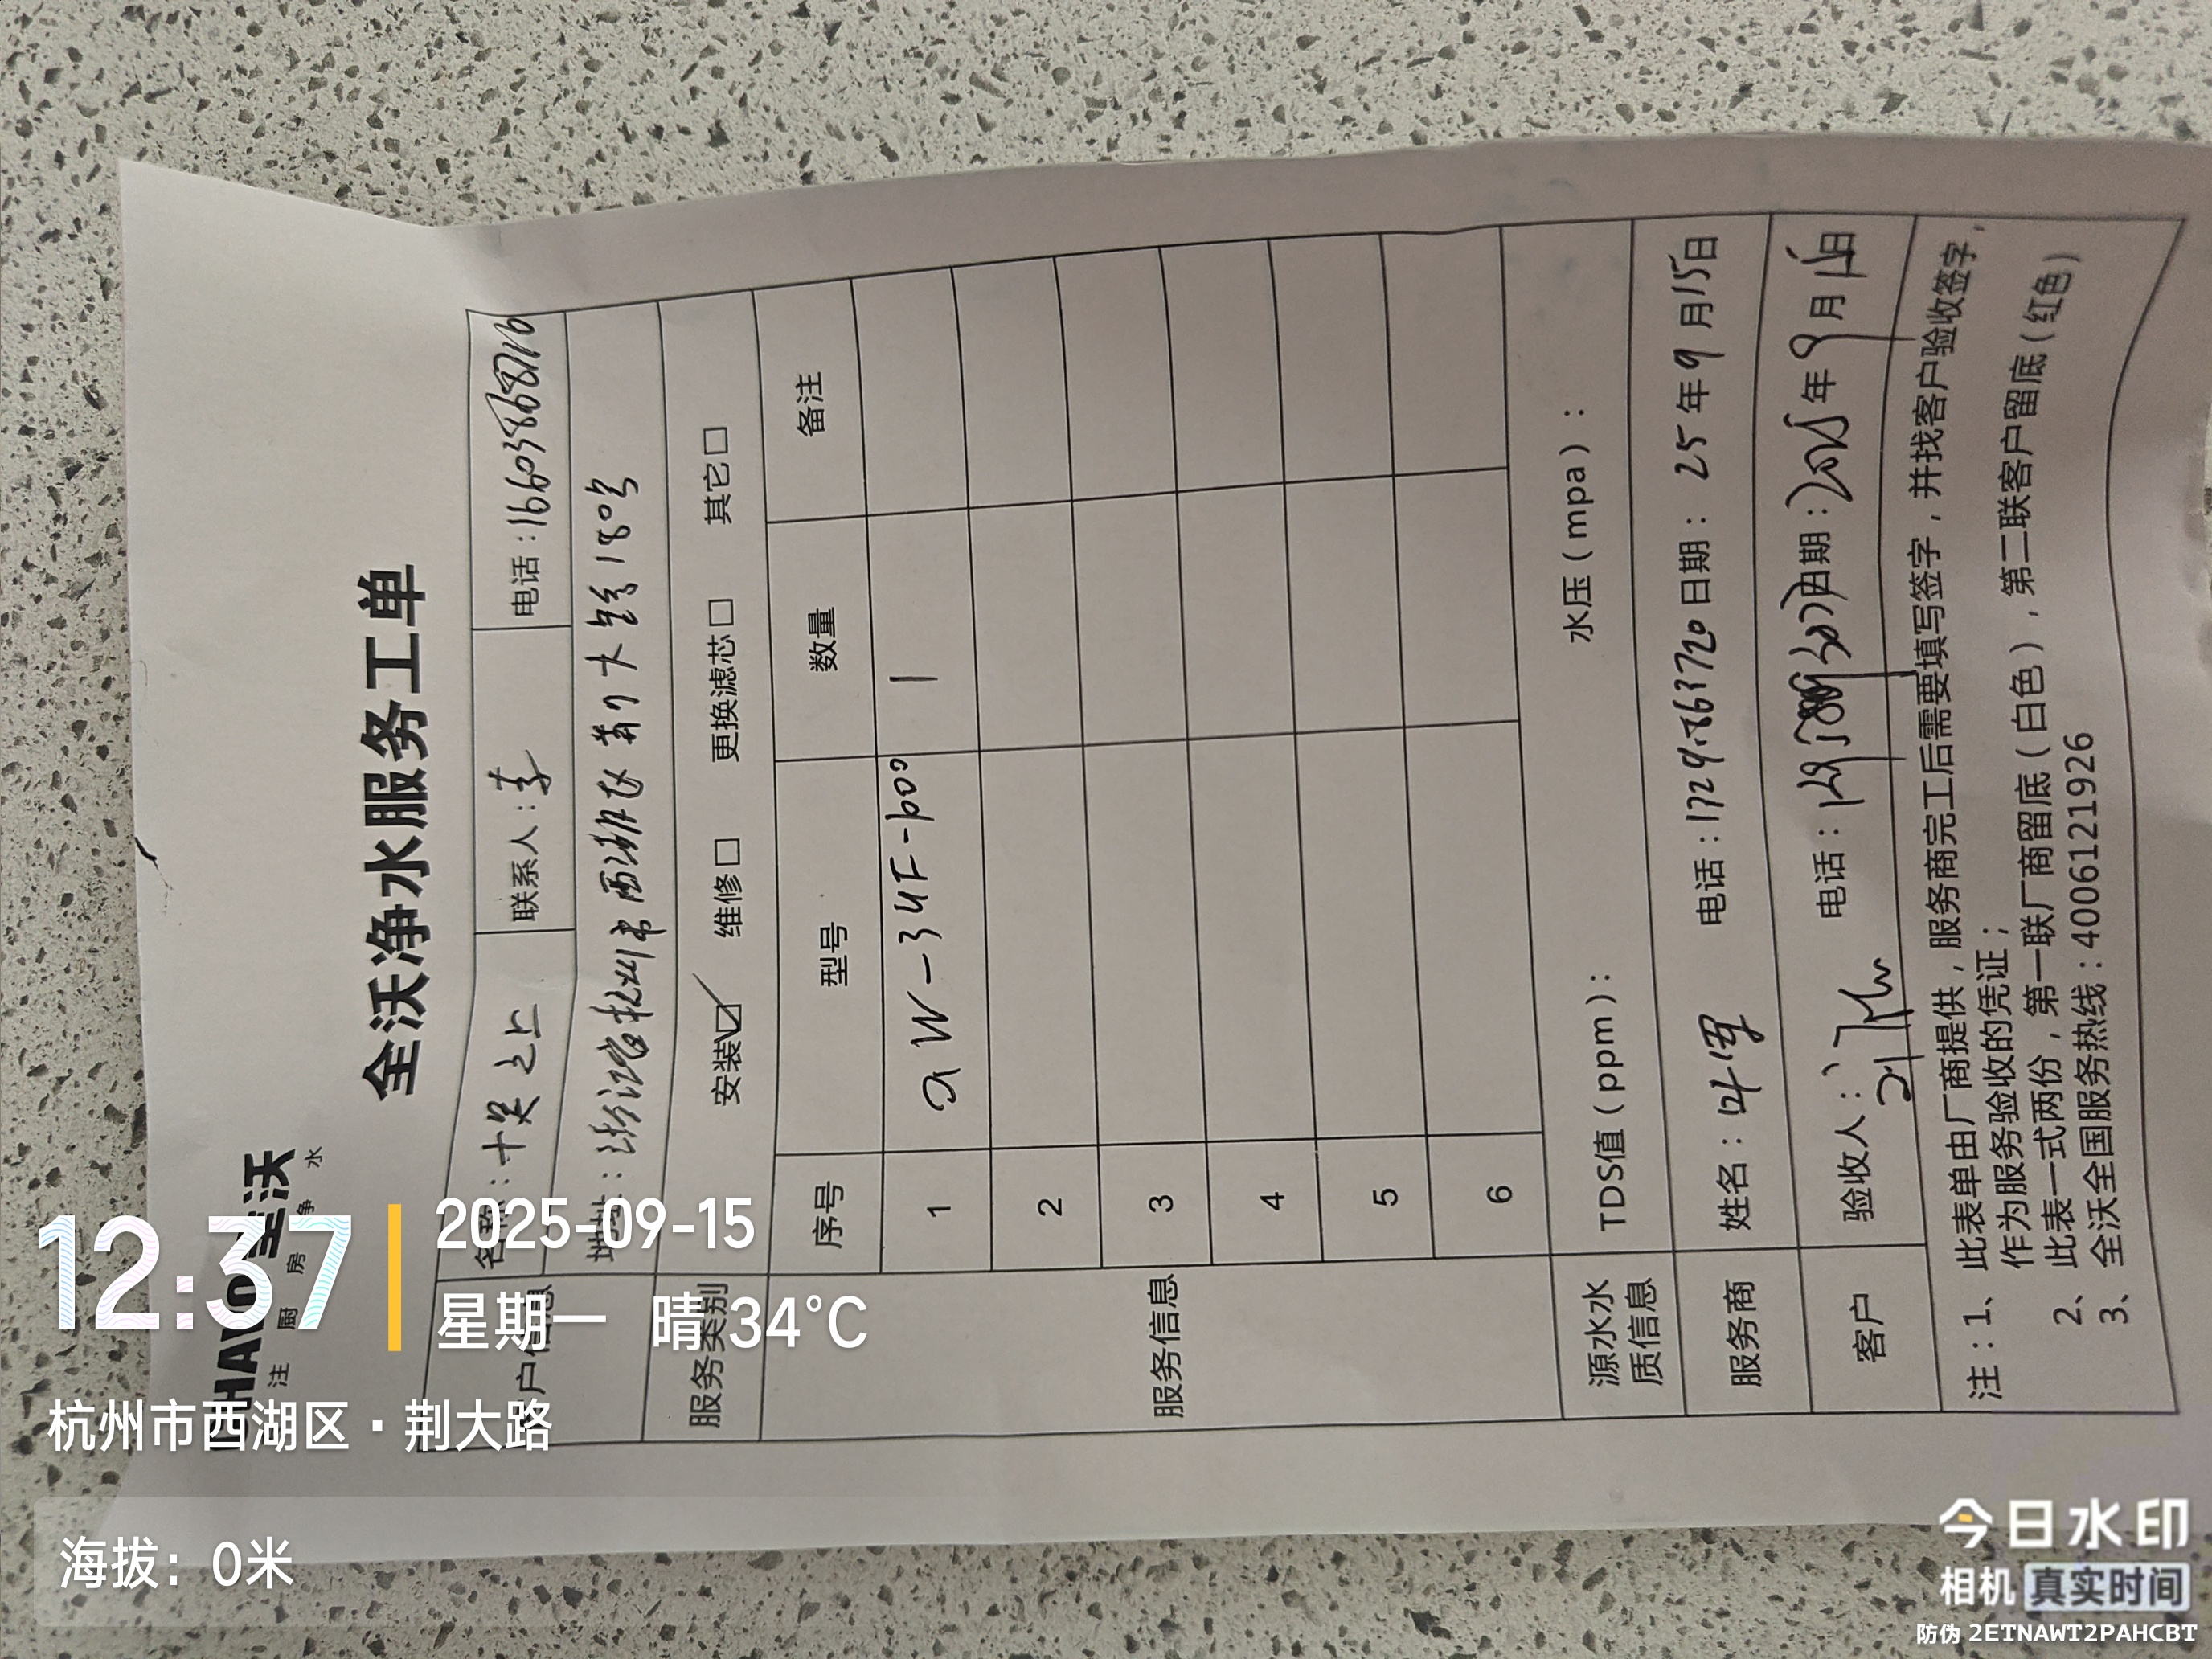 全沃
注 厨 房 净 水
全沃净水服务工单
客户信息
名称：十足之上 联系人：李 电话：16603868716
地址：浙江省杭州市西湖区荆大路180号
服务类别 安装☑ 维修□ 更换滤芯□ 其它□
服务信息
序号 型号 数量 备注
1 QW-3UF-1000 1
2
3
4
5
6
源水水质信息 TDS值（ppm）： 水压（mpa）：
服务商 姓名： 电话： 日期：25年9月15日
客户 验收人： 电话： 日期：2025年9月15日
注：1、此表单由厂商提供，服务商完工后需要填写签字，并找客户验收签字，
作为服务验收的凭证；
2、此表一式两份，第一联厂商留底（白色），第二联客户留底（红色）
3、全沃全国服务热线：4006121926
12:37
2025-09-15
星期一 晴 34°C
杭州市西湖区·荆大路
海拔：0米
今日水印
相机 真实时间
防伪 2ETNAWT2PAHCBT